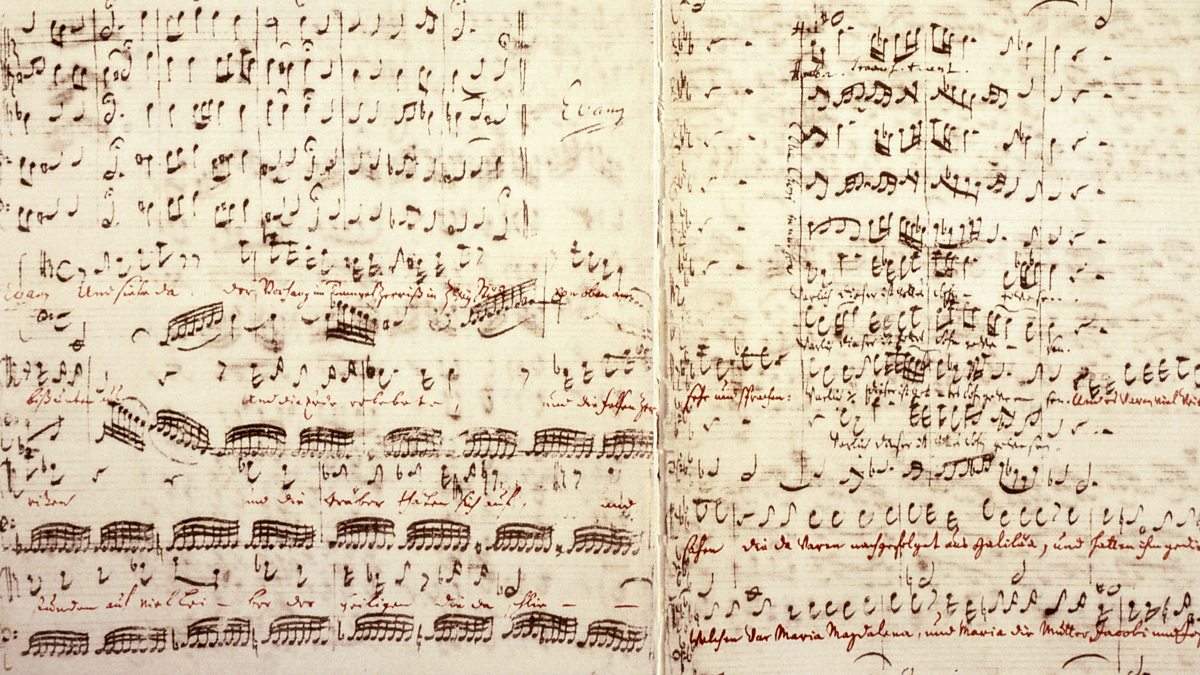 Evang
Evang Und siehe da. der Vorhang im Tempel zerriß in zwey Stück von oben an
biß unten aus und die Erde erbebete und die Felsen zer
rißen und die Gräber thaten sich auf, und
stunden auf viel Lei - ber der Heiligen die da schlie - -
Warlich dieser ist Gottes Sohn gewesen.
Warlich dieser ist Gottes Sohn gewe - sen.
sehr und sprachen: Warlich dieser ist Gottes Sohn gewesen. Und es waren viel Wei
Warlich dieser ist Gottes Sohn gewesen.
sahen die da waren nachgefolget aus Galiläa, und hatten ihm gedie
Welchen war Maria Magdalena, und Maria die Mutter Jacobi und